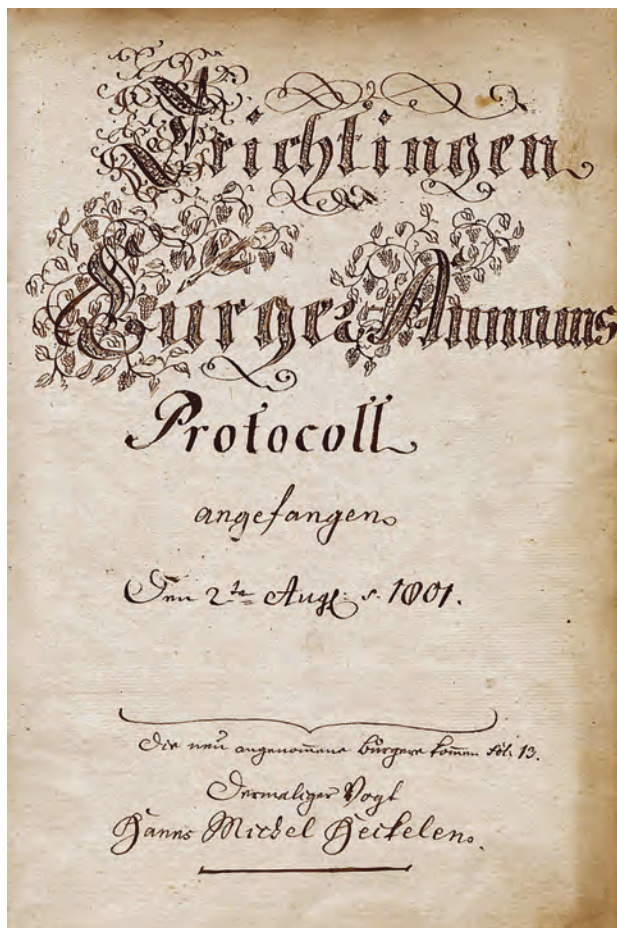 Trichtingen
Burger Annams
Protocoll
angefangen
Den 2te Aug. 1801.
Die neü angenom̅ene bürgere kom̅en fol: 13.
Dermaliger Vogt
Hanns Michel Heckelen.